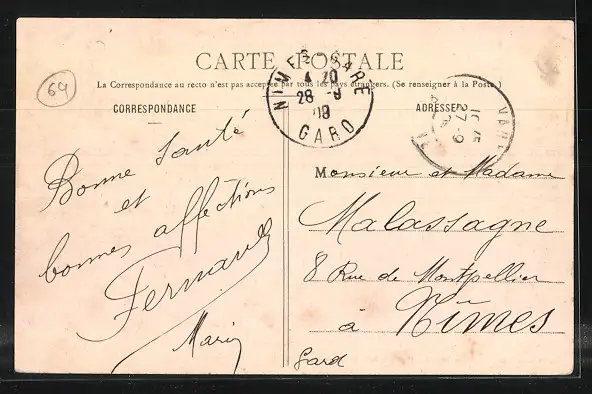 CARTE POSTALE
La Correspondance au recto n'est pas acceptée par tous les pays étrangers. (Se renseigner à la Poste.)
64
CORRESPONDANCE
ADRESSE
NIMES GARE
4 10
28 -9
09
GARD
27-9
Bonne santé
et
bonnes affections
Fernand
Marin
Monsieur et Madame
Malassagne
8 Rue de Montpellier
à Nîmes
Gard